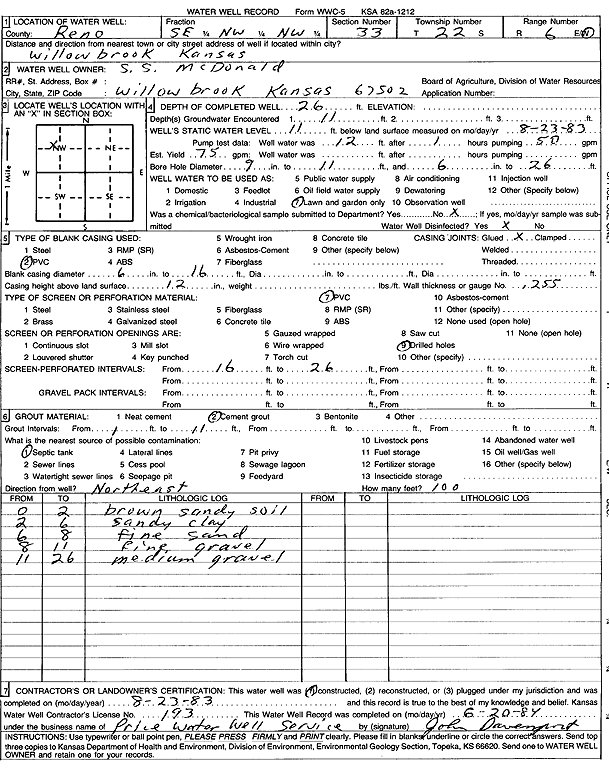 WATER WELL RECORD Form WWC-5 KSA 82a-1212
1 LOCATION OF WATER WELL: Fraction Section Number Township Number Range Number
County: Reno SE ¼ NW ¼ NW ¼ 33 T 22 S R 6 E/W
Distance and direction from nearest town or city street address of well if located within city?
Willowbrook Kansas
2 WATER WELL OWNER: S. S. McDonald
RR#, St. Address, Box # : Board of Agriculture, Division of Water Resources
City, State, ZIP Code : Willowbrook Kansas 67502 Application Number:
3 LOCATE WELL'S LOCATION WITH AN "X" IN SECTION BOX:
N
X NW NE
W E
SW SE
S
1 Mile
4 DEPTH OF COMPLETED WELL... 26 ft. ELEVATION:
Depth(s) Groundwater Encountered 1. 11 ft. 2. ft. 3. ft.
WELL'S STATIC WATER LEVEL 11 ft. below land surface measured on mo/day/yr 8-23-83
Pump test data: Well water was 12 ft. after 1 hours pumping 50 gpm
Est. Yield 75 gpm: Well water was ft. after hours pumping gpm
Bore Hole Diameter 9 in. to 11 ft., and 6 in. to 26 ft.
WELL WATER TO BE USED AS: 5 Public water supply 8 Air conditioning 11 Injection well
1 Domestic 3 Feedlot 6 Oil field water supply 9 Dewatering 12 Other (Specify below)
2 Irrigation 4 Industrial 7 Lawn and garden only 10 Observation well
Was a chemical/bacteriological sample submitted to Department? Yes No X ; If yes, mo/day/yr sample was submitted
Water Well Disinfected? Yes X No
5 TYPE OF BLANK CASING USED: 5 Wrought iron 8 Concrete tile CASING JOINTS: Glued X Clamped
1 Steel 3 RMP (SR) 6 Asbestos-Cement 9 Other (specify below) Welded
2 PVC 4 ABS 7 Fiberglass Threaded
Blank casing diameter 6 in. to 16 ft., Dia in. to ft., Dia in. to ft.
Casing height above land surface 12 in., weight lbs./ft. Wall thickness or gauge No. .255
TYPE OF SCREEN OR PERFORATION MATERIAL: 7 PVC 10 Asbestos-cement
1 Steel 3 Stainless steel 5 Fiberglass 8 RMP (SR) 11 Other (specify)
2 Brass 4 Galvanized steel 6 Concrete tile 9 ABS 12 None used (open hole)
SCREEN OR PERFORATION OPENINGS ARE: 5 Gauzed wrapped 8 Saw cut 11 None (open hole)
1 Continuous slot 3 Mill slot 6 Wire wrapped 9 Drilled holes
2 Louvered shutter 4 Key punched 7 Torch cut 10 Other (specify)
SCREEN-PERFORATED INTERVALS: From 16 ft. to 26 ft., From ft. to ft.
From ft. to ft., From ft. to ft.
GRAVEL PACK INTERVALS: From ft. to ft., From ft. to ft.
From ft. to ft., From ft. to ft.
6 GROUT MATERIAL: 1 Neat cement 2 Cement grout 3 Bentonite 4 Other
Grout Intervals: From 1 ft. to 11 ft., From ft. to ft., From ft. to ft.
What is the nearest source of possible contamination: 10 Livestock pens 14 Abandoned water well
1 Septic tank 4 Lateral lines 7 Pit privy 11 Fuel storage 15 Oil well/Gas well
2 Sewer lines 5 Cess pool 8 Sewage lagoon 12 Fertilizer storage 16 Other (specify below)
3 Watertight sewer lines 6 Seepage pit 9 Feedyard 13 Insecticide storage
Direction from well? Northeast How many feet? 100
FROM TO LITHOLOGIC LOG FROM TO LITHOLOGIC LOG
0 2 brown sandy soil
2 6 sandy clay
6 8 fine sand
8 11 fine gravel
11 26 medium gravel
7 CONTRACTOR'S OR LANDOWNER'S CERTIFICATION: This water well was (1) constructed, (2) reconstructed, or (3) plugged under my jurisdiction and was
completed on (mo/day/year) 8-23-83 and this record is true to the best of my knowledge and belief. Kansas
Water Well Contractor's License No. 193 This Water Well Record was completed on (mo/day/yr) 6-20-84
under the business name of Price Water Well Service by (signature) John Davenport
INSTRUCTIONS: Use typewriter or ball point pen, PLEASE PRESS FIRMLY and PRINT clearly. Please fill in blanks, underline or circle the correct answers. Send top
three copies to Kansas Department of Health and Environment, Division of Environment, Environmental Geology Section, Topeka, KS 66620. Send one to WATER WELL
OWNER and retain one for your records.